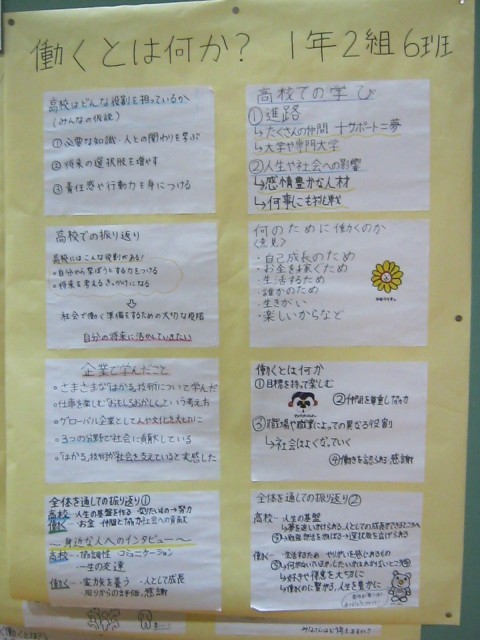 働くとは何か? 1年2組6班
高校はどんな役割を担っているか
(みんなの仮説)
①必要な知識・人との関わりを学ぶ
②将来の選択肢を増やす
③責任感や行動力を身につける
高校での学び
①進路
↳たくさんの仲間 十サポート=夢
↳大学や専門大学
②人生や社会への影響
↳感情豊かな人材
↳何事にも挑戦
高校での振り返り
高校にはこんな役割がある!
・自分から学ぼうとする力をつける
・将来を考えるきっかけになる
⇩
社会で働く準備をするための大切な段階
自分の将来に活かしていきたい
何のために働くのか
(意見)
・自己成長のため
・お金を稼ぐため
・生活するため
・誰かのため
・生きがい
・楽しいからなど
企業で学んだこと
・さまざまな「はかる」技術について学んだ
・仕事を楽しむ「おもしろおかしく」という考え方
・グローバル企業として人や文化を大切に
・3つの分野で社会に貢献している
・「はかる」技術が社会を支えていると実感した
働くとは何か
①目標を持って楽しむ
②仲間を尊重しながら
③職場や職業によっての異なる役割
↳社会はよくなっていく
④働きを認められる、感謝
全体を通しての振り返り①
高校…人生の基盤を作る
働く…お金 仲間と社会への貢献
〜身近な人へのインタビュー〜
高校…・協調性 コミュニケーション
・一生の友達
働く…・家族を養う ・人として成長
・周りからの評価、感謝
全体を通しての振り返り②
高校…・人生の基盤
働く…・生活するため やりがいを感じるもの
↳好きや得意を大切に